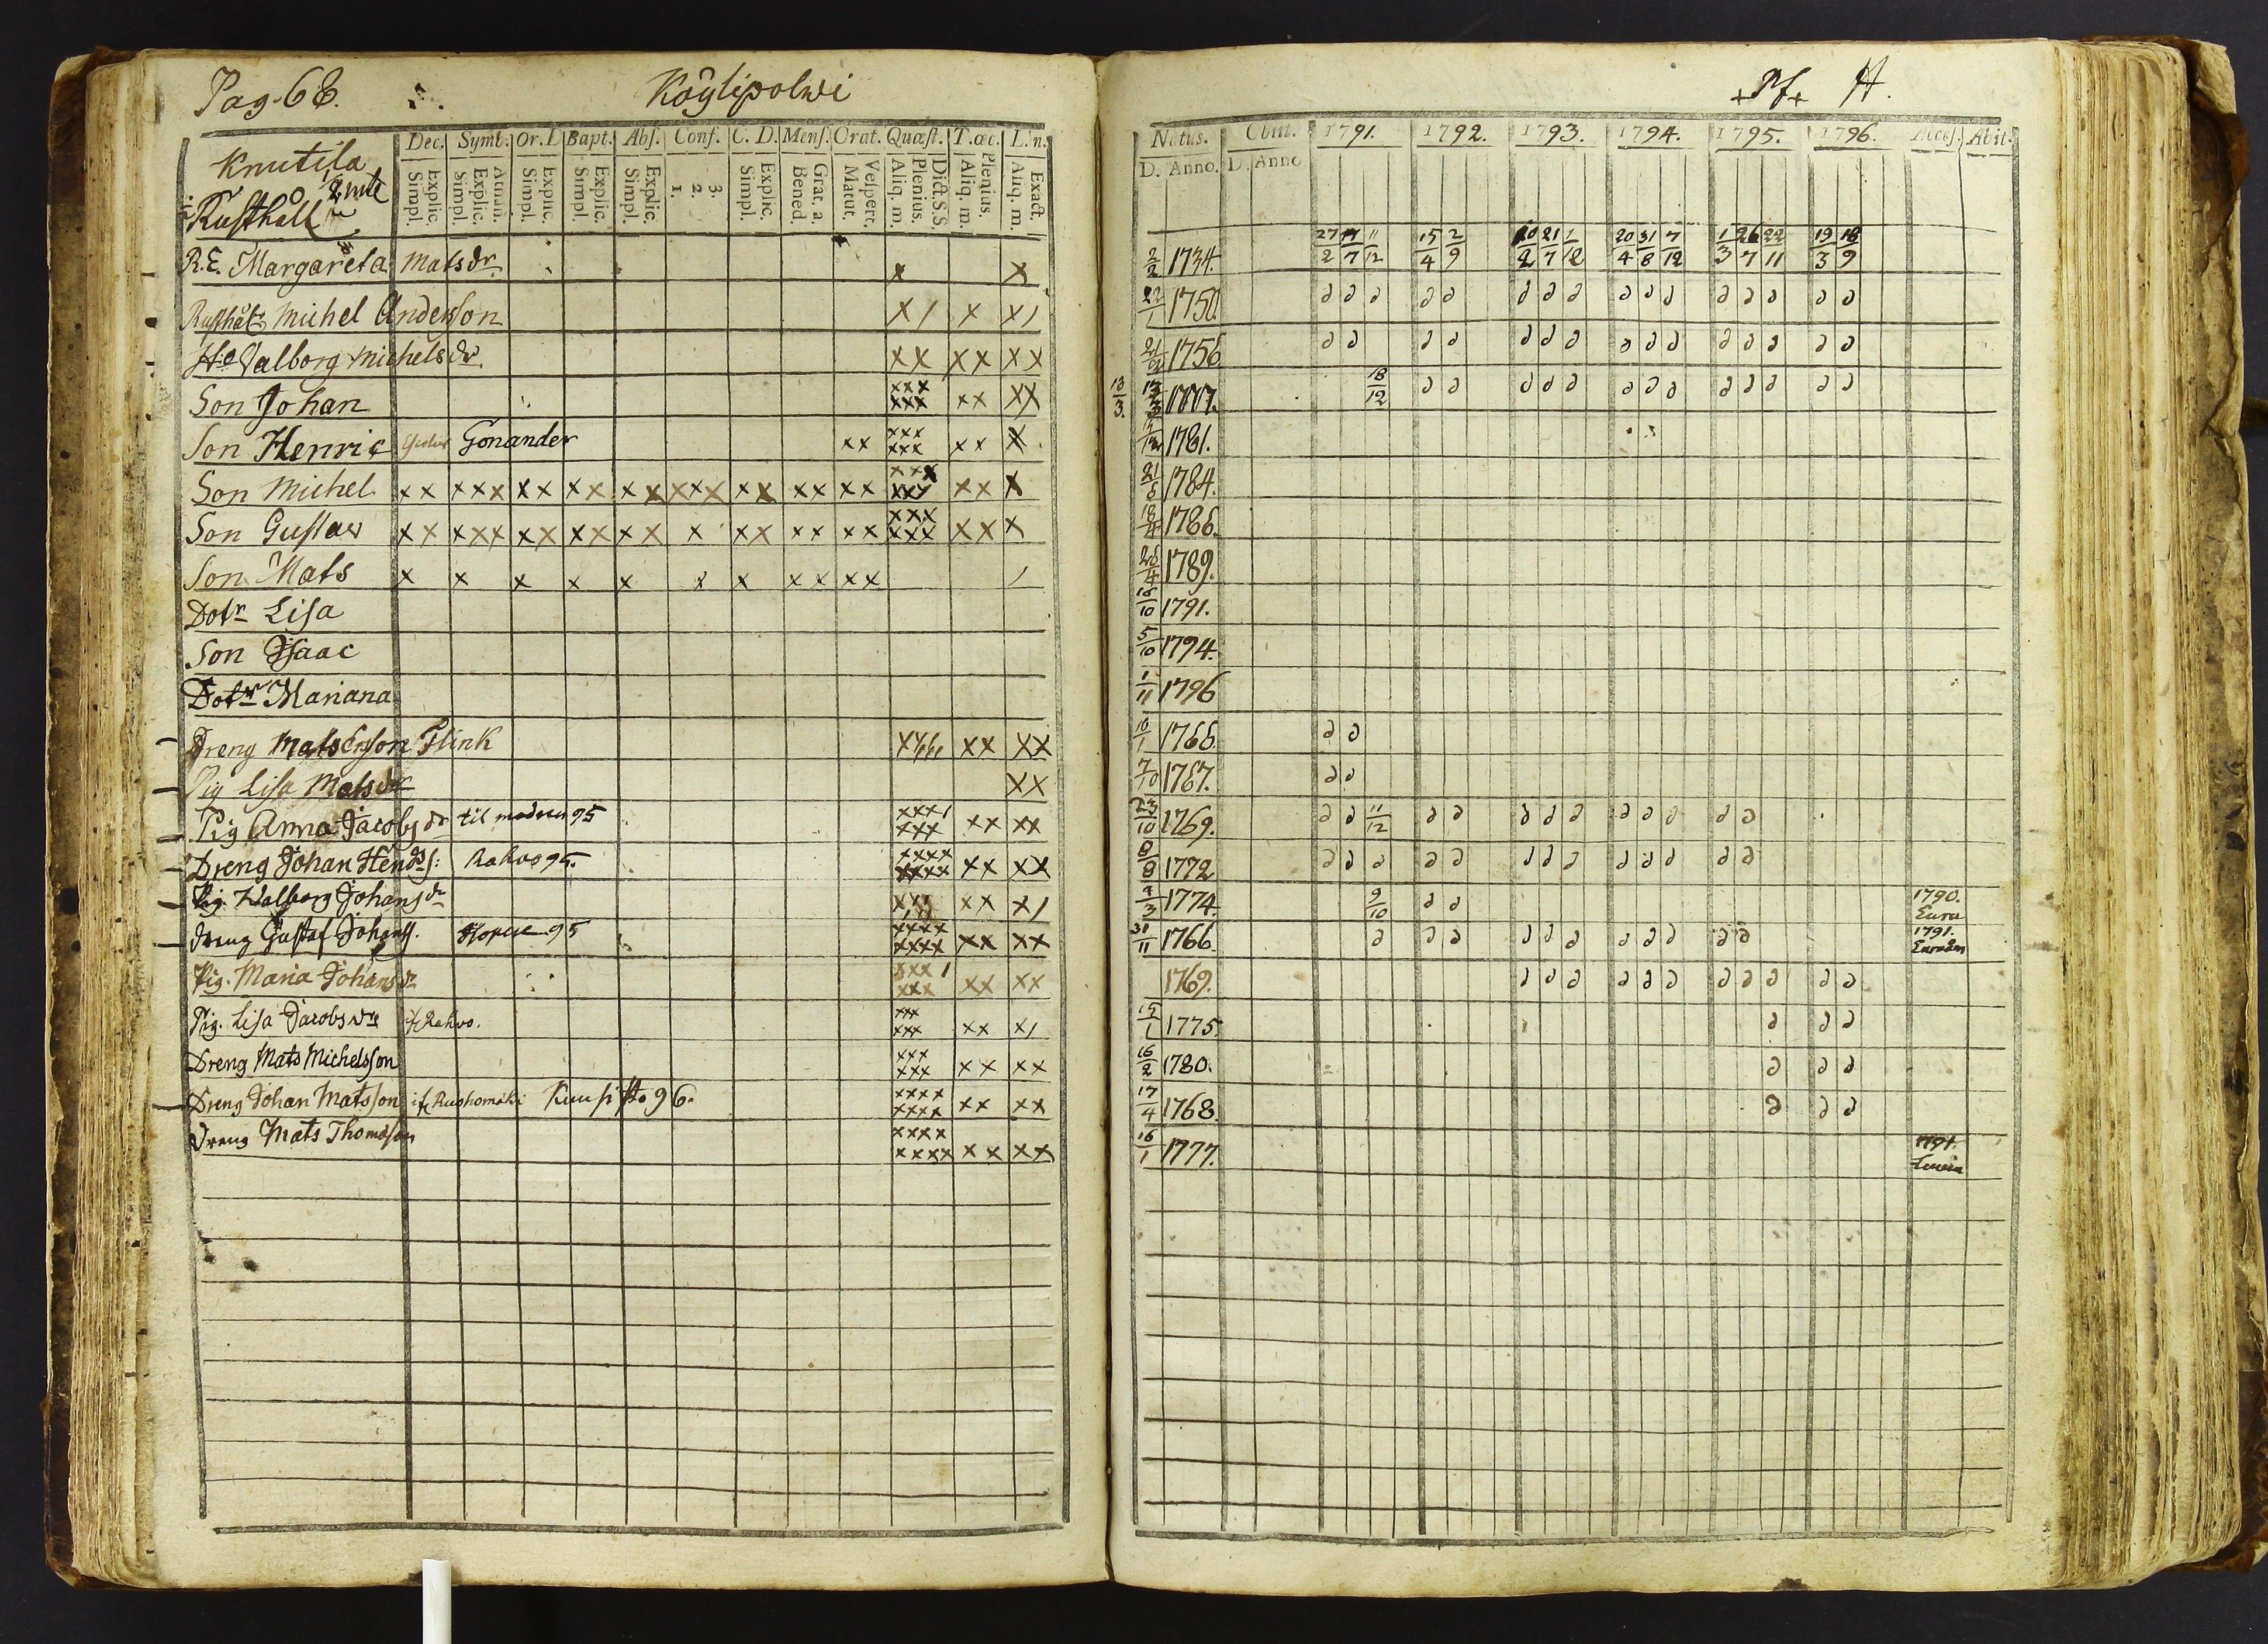 Pag. 68.
Köylipolwi
Dec. Symb. Or. D Bapt. Abs. Conf. C. D. Mens. Orat. Quæst. T. œc. L. n.
Explic. Simpl. Athan. Explic. Simpl. Explic. Simpl. Explic. Simpl. Explic. Simpl. 3. 2. 1. Explic. Simpl. Grat. a. Bened. Vespert. Matut. Dict. S. S. Plenius. Aliq. m. Plenius. Aliq. m. Exact. Aliq. m.
Knutila
Rusthåll
R. E. Margareta Matsdr x x
Rusthåll: Michel Andersson x / x x /
H:o Valborg Michelsdr x x x x x x
Son Johan x x x x x x x x x x
Son Henric Gonander x x x x x x x x x x x
Son Michel x x x x x x x x x x x x x x x x x x x x x x x x x x x x x x
Son Gustav x x x x x x x x x x x x x x x x x x x x x x x x x x x
Son Mats x x x x x x x x x x x /
Dotr Lisa
Son Isaac
Dotr Mariana
Dreng Mats Ersson Flink x x x x x x
Pig Lisa Matsdr x x
Pig Anna Jacobsdr til modren 95 x x x / x x x x x x x
Dreng Johan Hendss: Rahvo 95. x x x x x x x x x x x x
Pig. Walborg Johansdr x x x x x /
Dreng Gustaf Johanss. 95 x x x x x x x x x x x x
Pig. Maria Johansdr x x x / x x x x x x x
Pig. Lisa Jacobsdr if. Rahvo. x x x x x x x x x /
Dreng Mats Michelsson x x x x x x x x x x
Dreng Johan Matsson if Ruohomäki 96. x x x x x x x x x x x x
Dreng Mats Thomasson x x x x x x x x x x x x
Natus. Obiit. 1791. 1792. 1793. 1794. 1795. 1796. Acces. Abit.
D. Anno. D. Anno
2/2 1734. 27/2 17/7 11/12 15/4 2/9 20/2 21/7 1/12 20/4 31/8 7/12 1/3 26/7 22/11 19/3 18/9
22/1 1750
1756
13/3. 1777.
1781.
21/8 1784.
18/4 1786.
26/4 1789.
16/10 1791.
5/10 1794.
1/11 1796
10/1 1766
7/10 1767.
23/10 1769. 11/12
8/8 1772
3 1774. 9/10 1790. Eura
31/11 1766. 1791.
1769.
15/1 1775.
16/2 1780.
17/4 1768.
16/1 1777. 1791.